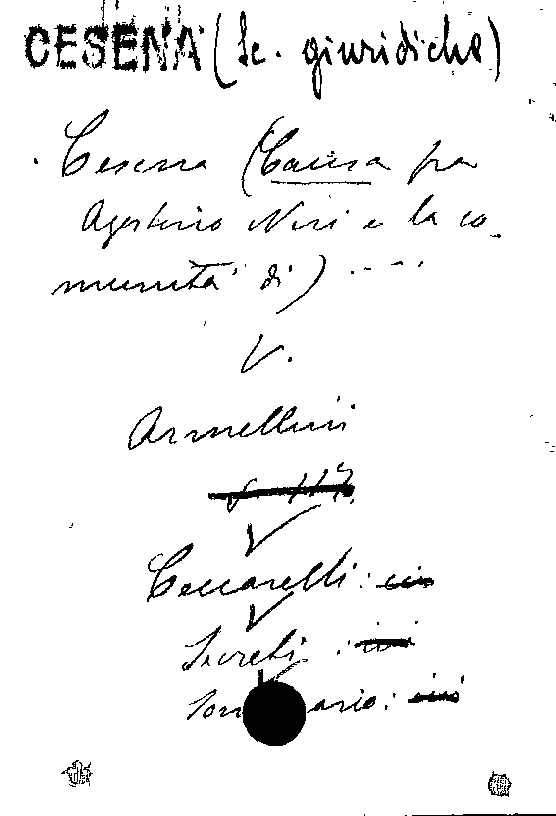 CESENA (Sc. giuridiche)
Cesena (Causa fra
Agostino Neri e la co-
munità di) ....
V.
Armellini
Ceccarelli:
Secreti: